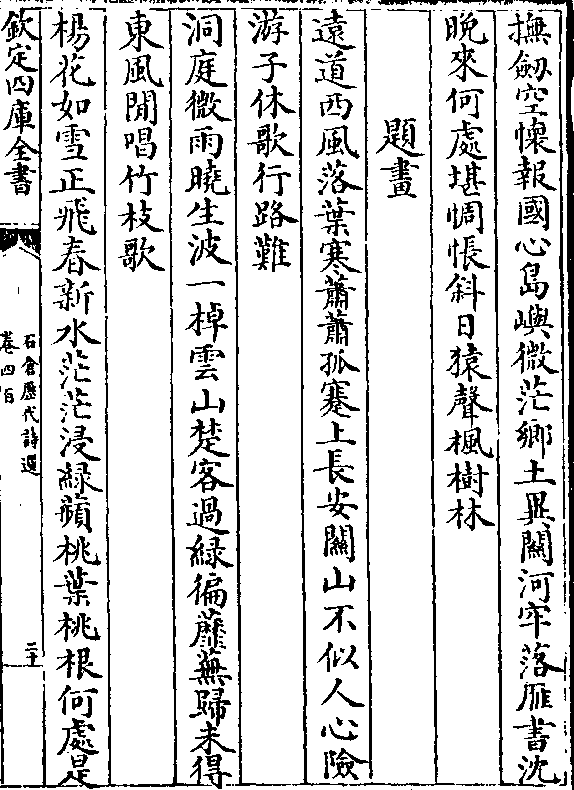 撫劒空懷報國心島嶼微茫鄉土異關河牢落雁書沈
晚來何處堪惆悵斜日猿聲楓樹林
題畫
遠道西風落葉寒蕭蕭孤蹇上長安關山不似人心險
游子休歌行路難
洞庭微雨曉生波一棹雲山楚客過緑徧蘼蕪歸未得
東風閒唱竹枝歌
楊花如雪正飛春新水茫茫浸緑蘋桃葉桃根何處是
欽定四庫全書
石倉歷代詩選
卷四百
二十